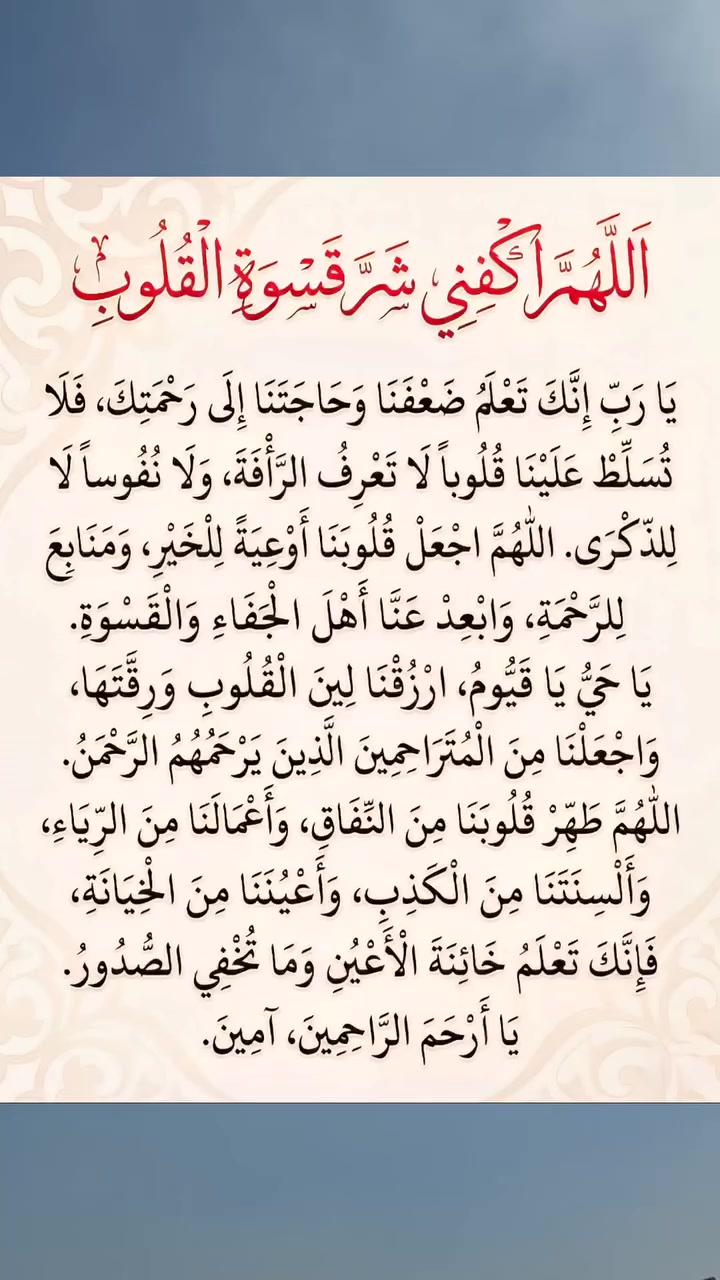 اَللَّهُمَّ اكْفِنِي شَرَّ قَسْوَةِ الْقُلُوبِ
يَا رَبِّ إِنَّكَ تَعْلَمُ ضَعْفَنَا وَحَاجَتَنَا إِلَى رَحْمَتِكَ، فَلَا
تُسَلِّطْ عَلَيْنَا قُلُوباً لَا تَعْرِفُ الرَّأْفَةَ، وَلَا نُفُوساً لَا
لِلذِّكْرَى. اللّٰهُمَّ اجْعَلْ قُلُوبَنَا أَوْعِيَةً لِلْخَيْرِ، وَمَنَابِعَ
لِلرَّحْمَةِ، وَابْعِدْ عَنَّا أَهْلَ الْجَفَاءِ وَالْقَسْوَةِ.
يَا حَيُّ يَا قَيُّومُ، ارْزُقْنَا لِينَ الْقُلُوبِ وَرِقَّتَهَا،
وَاجْعَلْنَا مِنَ الْمُتَرَاحِمِينَ الَّذِينَ يَرْحَمُهُمُ الرَّحْمَنُ.
اللّٰهُمَّ طَهِّرْ قُلُوبَنَا مِنَ النِّفَاقِ، وَأَعْمَالَنَا مِنَ الرِّيَاءِ،
وَأَلْسِنَتَنَا مِنَ الْكَذِبِ، وَأَعْيُنَنَا مِنَ الْخِيَانَةِ،
فَإِنَّكَ تَعْلَمُ خَائِنَةَ الْأَعْيُنِ وَمَا تُخْفِي الصُّدُورُ.
يَا أَرْحَمَ الرَّاحِمِينَ، آمِينَ.